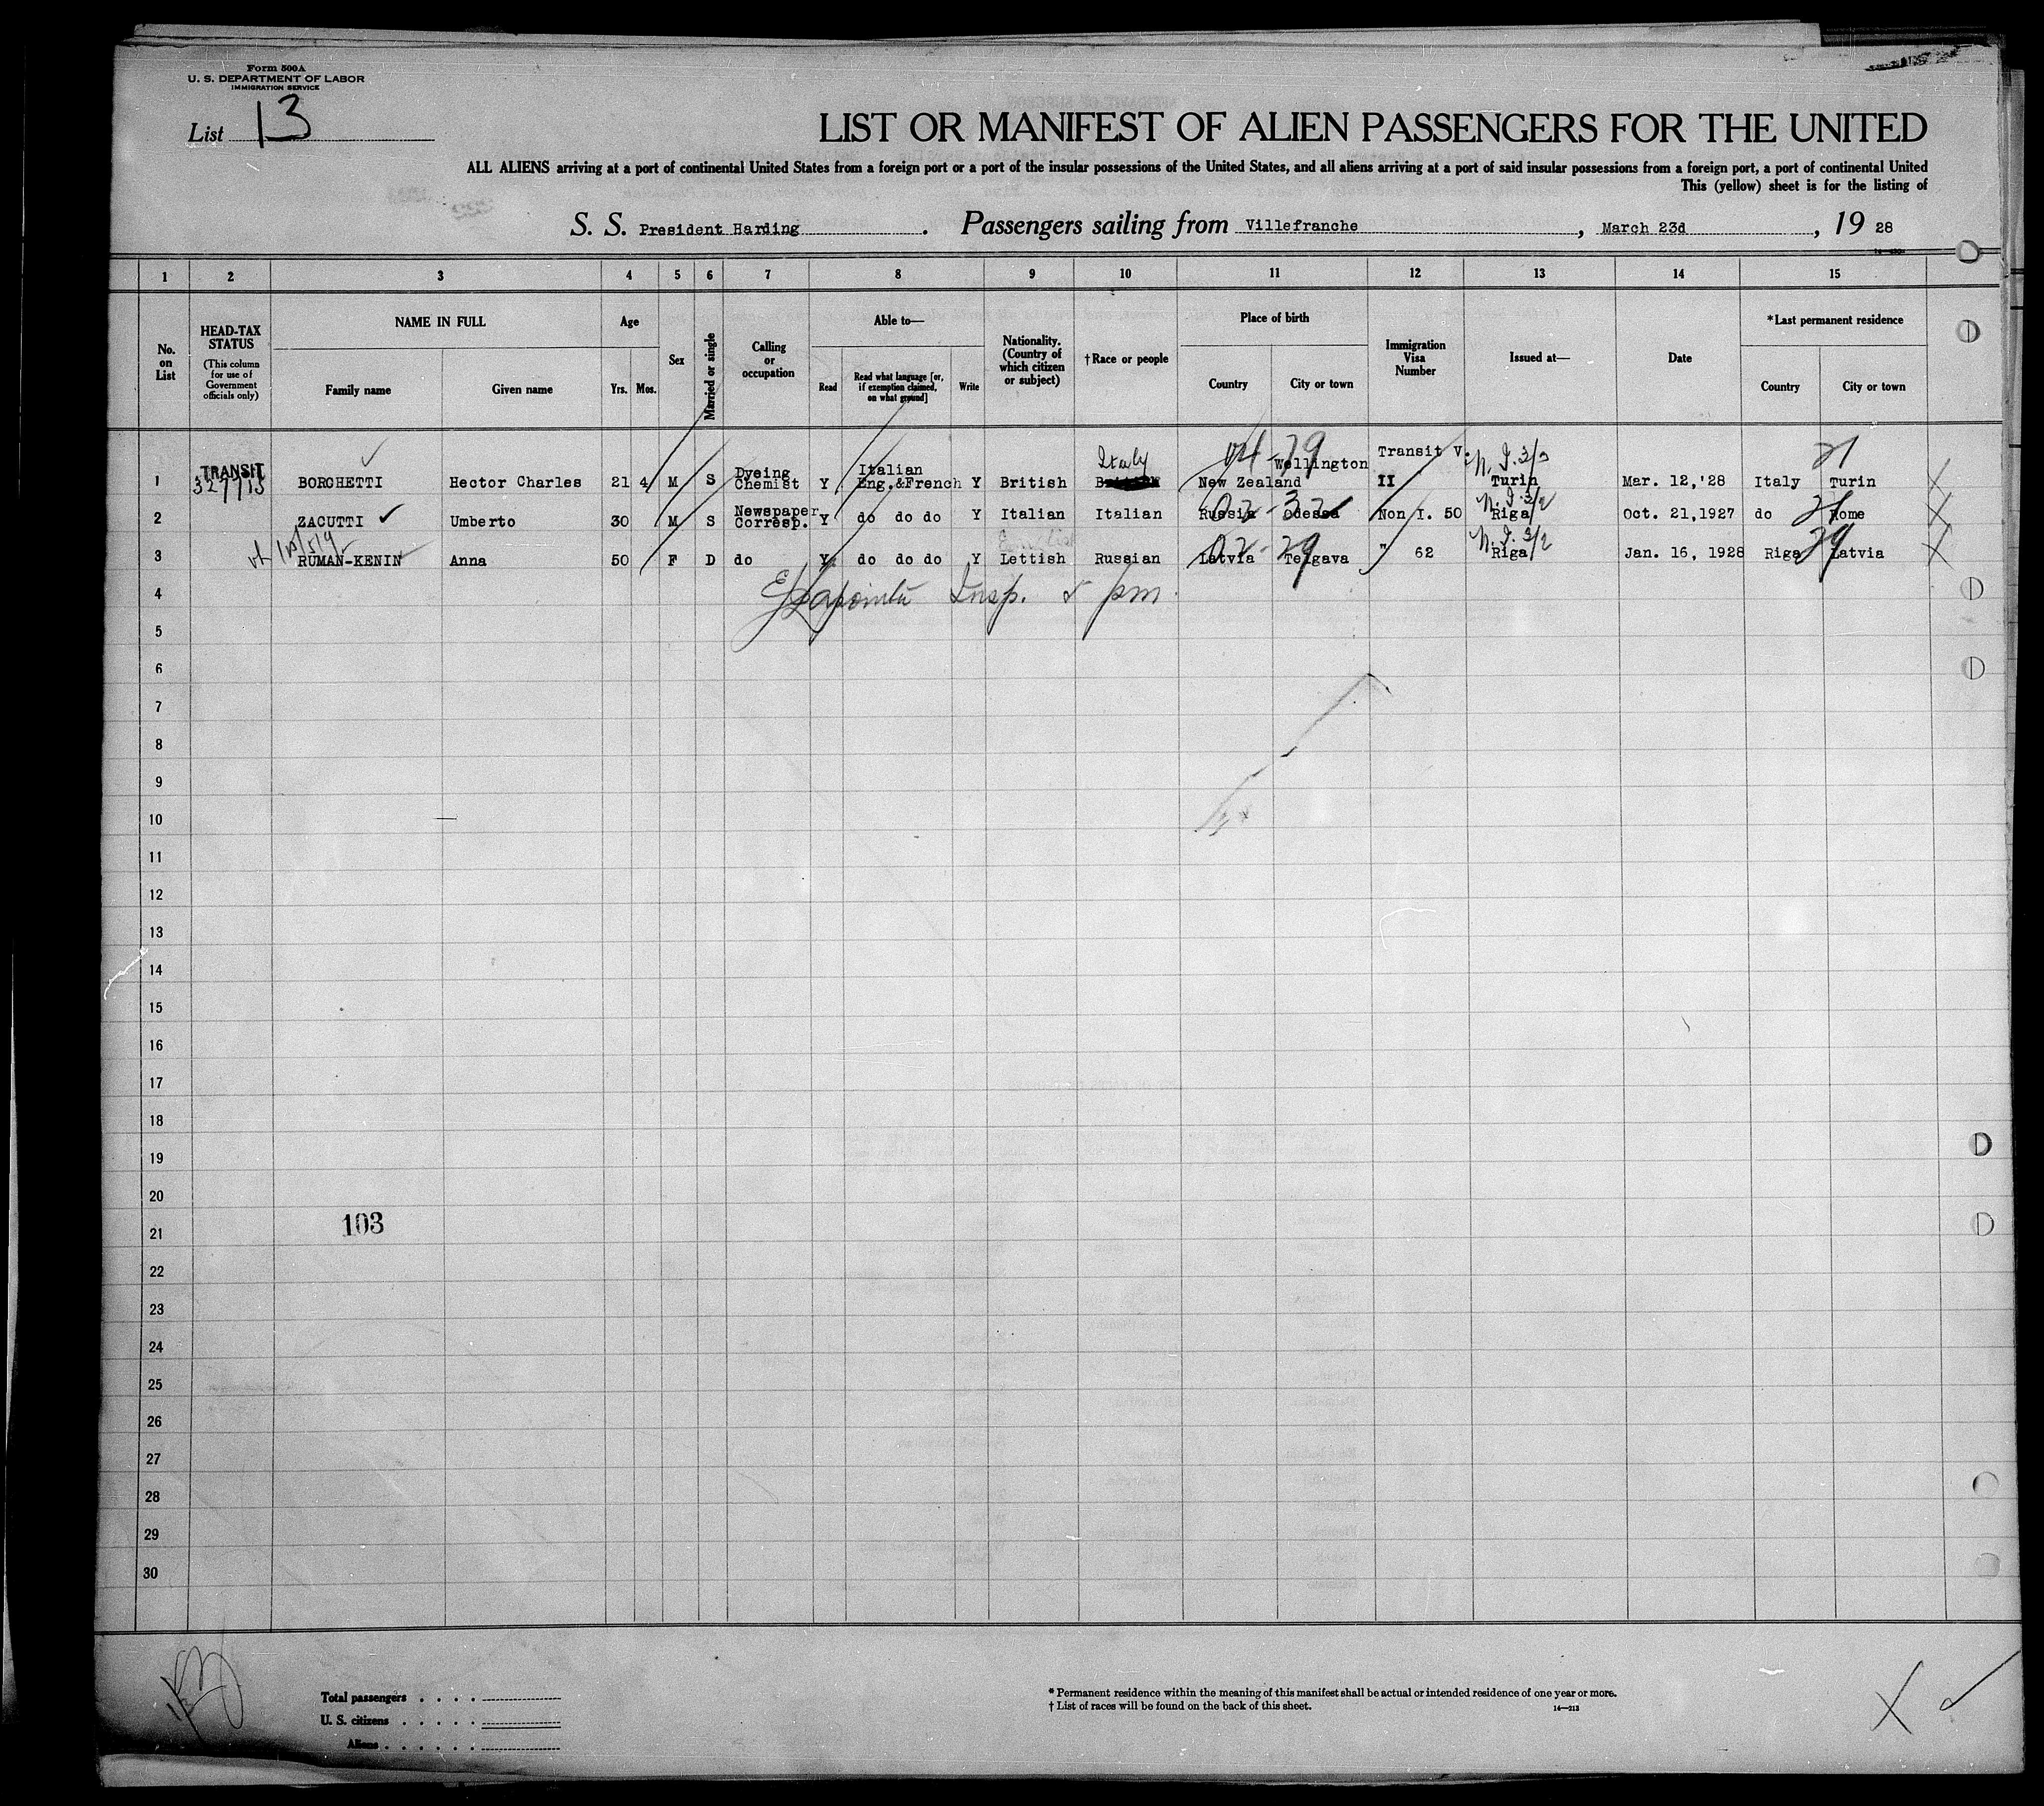 Form 500A
U. S. DEPARTMENT OF LABOR
IMMIGRATION SERVICE
List 13
LIST OR MANIFEST OF ALIEN PASSENGERS FOR THE UNITED
ALL ALIENS arriving at a port of continental United States from a foreign port or a port of the insular possessions of the United States, and all aliens arriving at a port of said insular possessions from a foreign port, a port of continental United
This (yellow) sheet is for the listing of
S. S. President Harding . Passengers sailing from Villefranche , March 23d , 19 28
1 2 3 4 5 6 7 8 9 10 11 12 13 14 15
No. on List
HEAD-TAX STATUS
(This column for use of Government officials only)
NAME IN FULL
Family name Given name
Age
Yrs. Mos.
Sex
Married or single
Calling or occupation
Able to—
Read
Read what language [or, if exemption claimed, on what ground]
Write
Nationality. (Country of which citizen or subject)
†Race or people
Place of birth
Country City or town
Immigration Visa Number
Issued at—
Date
*Last permanent residence
Country City or town
1 TRANSIT BORGHETTI Hector Charles 21 4 M S Dyeing Chemist Y Italian Eng.&French Y British Italy New Zealand Wellington Transit V. II N. I. Turin Mar. 12,'28 Italy Turin 21
2 ZACUTTI Umberto 30 M S Newspaper Corresp. Y do do do Y Italian Italian Russia Odessa Non I. 50 N. I. 3/2 Riga Oct. 21,1927 do Rome 21
3 RUMAN-KENIN Anna 50 F D do Y do do do Y Lettish Russian Latvia Telgava " 62 N. I. 3/2 Riga Jan. 16, 1928 Riga Latvia 29
4 Insp. pm
5
6
7
8
9
10
11
12
13
14
15
16
17
18
19
20
103
21
22
23
24
25
26
27
28
29
30
Total passengers . . . .
U. S. citizens . . . . .
Aliens . . . . . .
* Permanent residence within the meaning of this manifest shall be actual or intended residence of one year or more.
† List of races will be found on the back of this sheet.
14—213